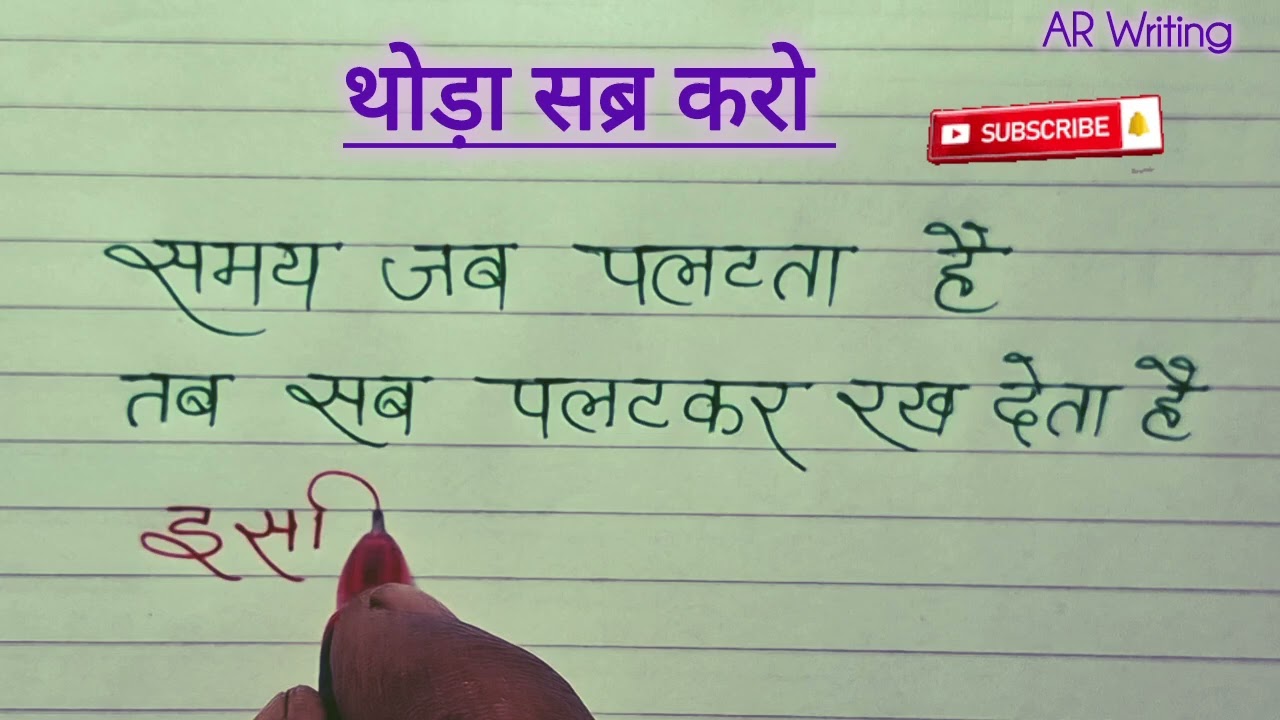 AR Writing
थोड़ा सब्र करो
SUBSCRIBE
समय जब पलटता है
तब सब पलटकर रख देता है
इसि